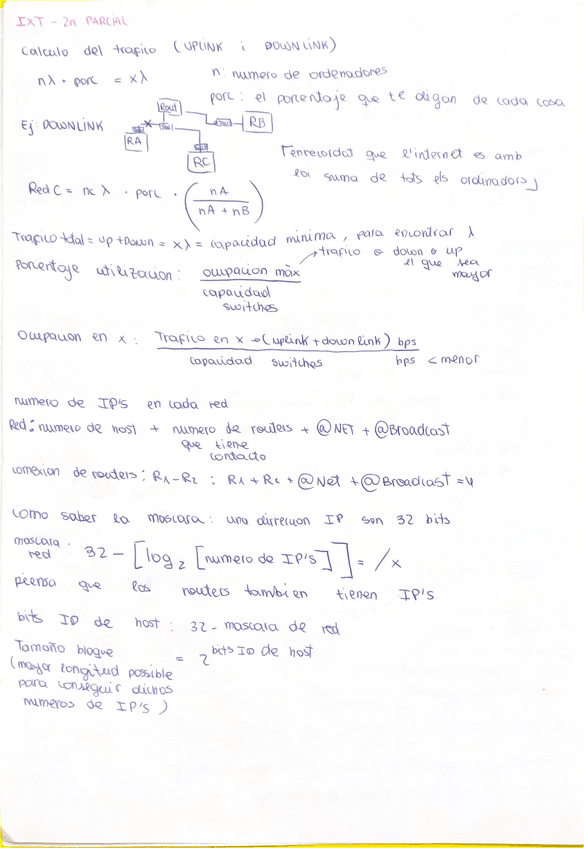 IXT - 2n PARCIAL
calculo del trafico (UPLINK i DOWNLINK)
nλ · porc = xλ
n: numero de ordenadores
porc: el porcentaje que te digan de cada cosa
Ej: DOWNLINK
Rout
RA
RB
RC
[enrecordat que l'internet es amb
la suma de tots els ordinadors]
Red C = nc λ · porc · (nA / nA + nB)
Trafico total = up + Down = xλ = capacidad minima, para encontrar λ
Porcentaje utilizacion: ocupacion màx / capacidad switches
→ trafico o down o up
el que sea
mayor
Ocupacion en x: Trafico en x → (uplink + downlink) bps / capacidad switches bps < menor
numero de IP'S en cada red
Red: numero de host + numero de routers + @NET + @Broadcast
que tiene
contacto
conexion de routers: R1-R2: R1 + R2 + @Net + @Broadcast = 4
como saber la mascara: una direccion IP son 32 bits
mascara red: 32 - [log2 [numero de IP'S]] = /x
piensa que los routers tambien tienen IP'S
bits ID de host: 32 - mascara de red
Tamaño bloque = 2^bits ID de host
(mayor longitud possible
para conseguir dichos
numeros de IP'S)